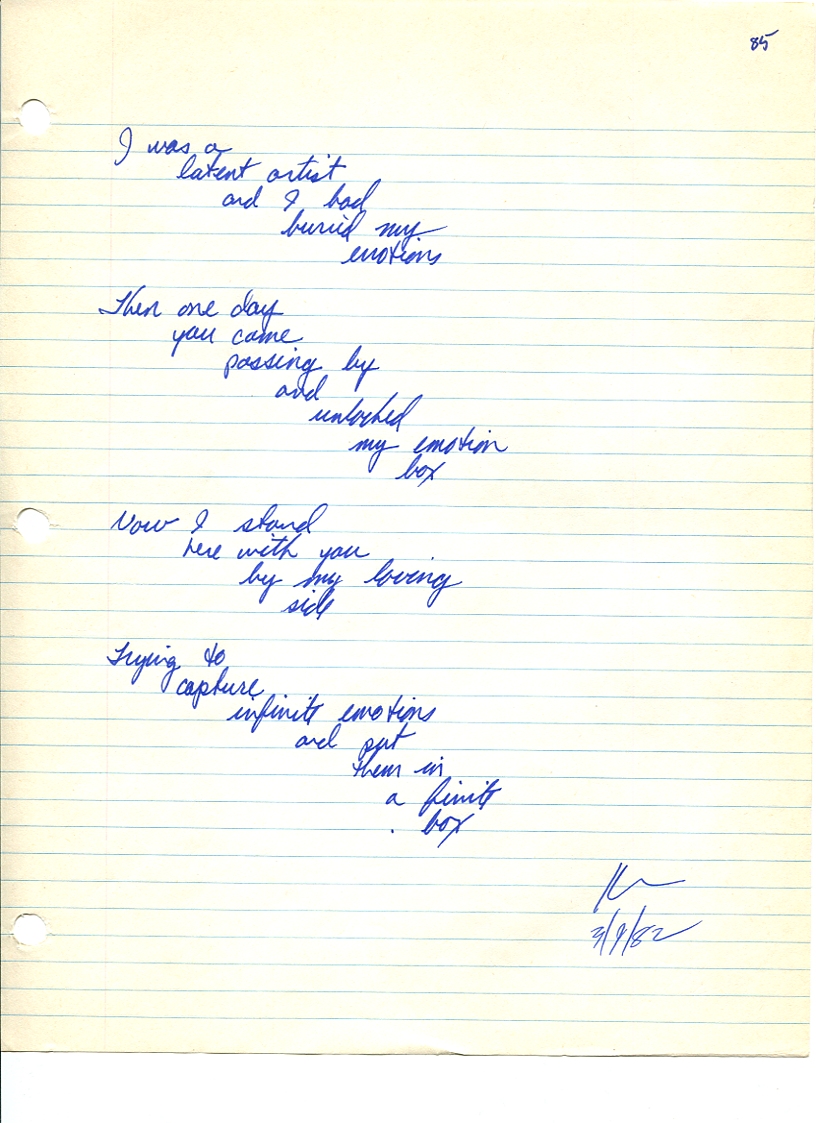 85
I was a
latent artist
and I had
buried my
emotions
Then one day
you came
passing by
and
unlocked
my emotion
box
Now I stand
here with you
by my loving
side
Trying to
capture
infinite emotions
and put
them in
a finite
box
3/9/82